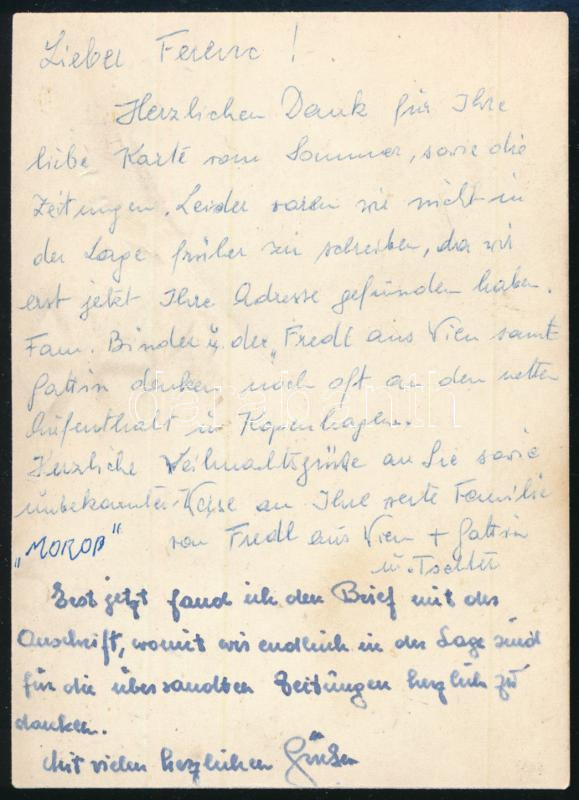 Lieber Ferenc!
Herzlichen Dank für Ihre
liebe Karte vom Sommer, sowie die
Zeitungen. Leider waren wir nicht in
der Lage früher zu schreiben, da wir
erst jetzt Ihre Adresse gefunden haben.
Fam. Binder u. der „Fredl aus Wien samt
Gattin denken noch oft an den netten
Aufenthalt in Kopenhagen.
Herzliche Weihnachtsgrüße an Sie sowie
unbekannter Weise an Ihre werte Familie
von Fredl aus Wien + Gattin
„MOROB“
u. Tochter
Erst jetzt fand ich den Brief mit der
Anschrift, womit wir endlich in der Lage sind
für die übersandten Zeitungen herzlich zu
danken.
Mit vielen herzlichen Grüßen
darabanth